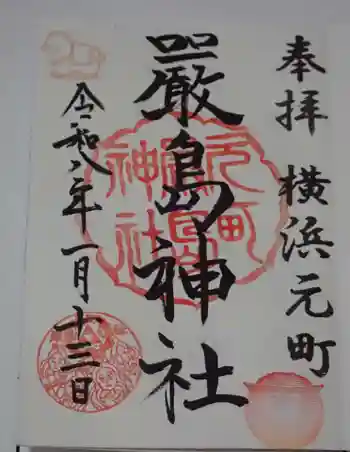 奉拝 横浜元町
厳島神社
令和八年一月十三日
元町
厳島
神社